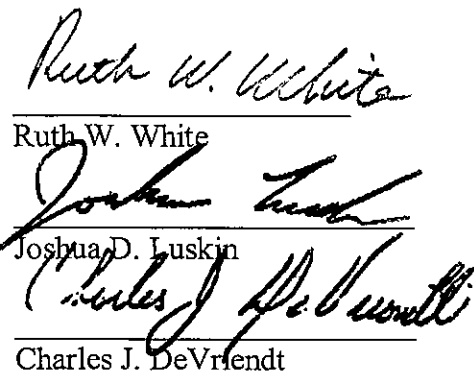 Ruth W. White
Ruth W. White
Joshua Luskin
Joshua D. Luskin
Charles J DeVriendt
Charles J. DeVriendt